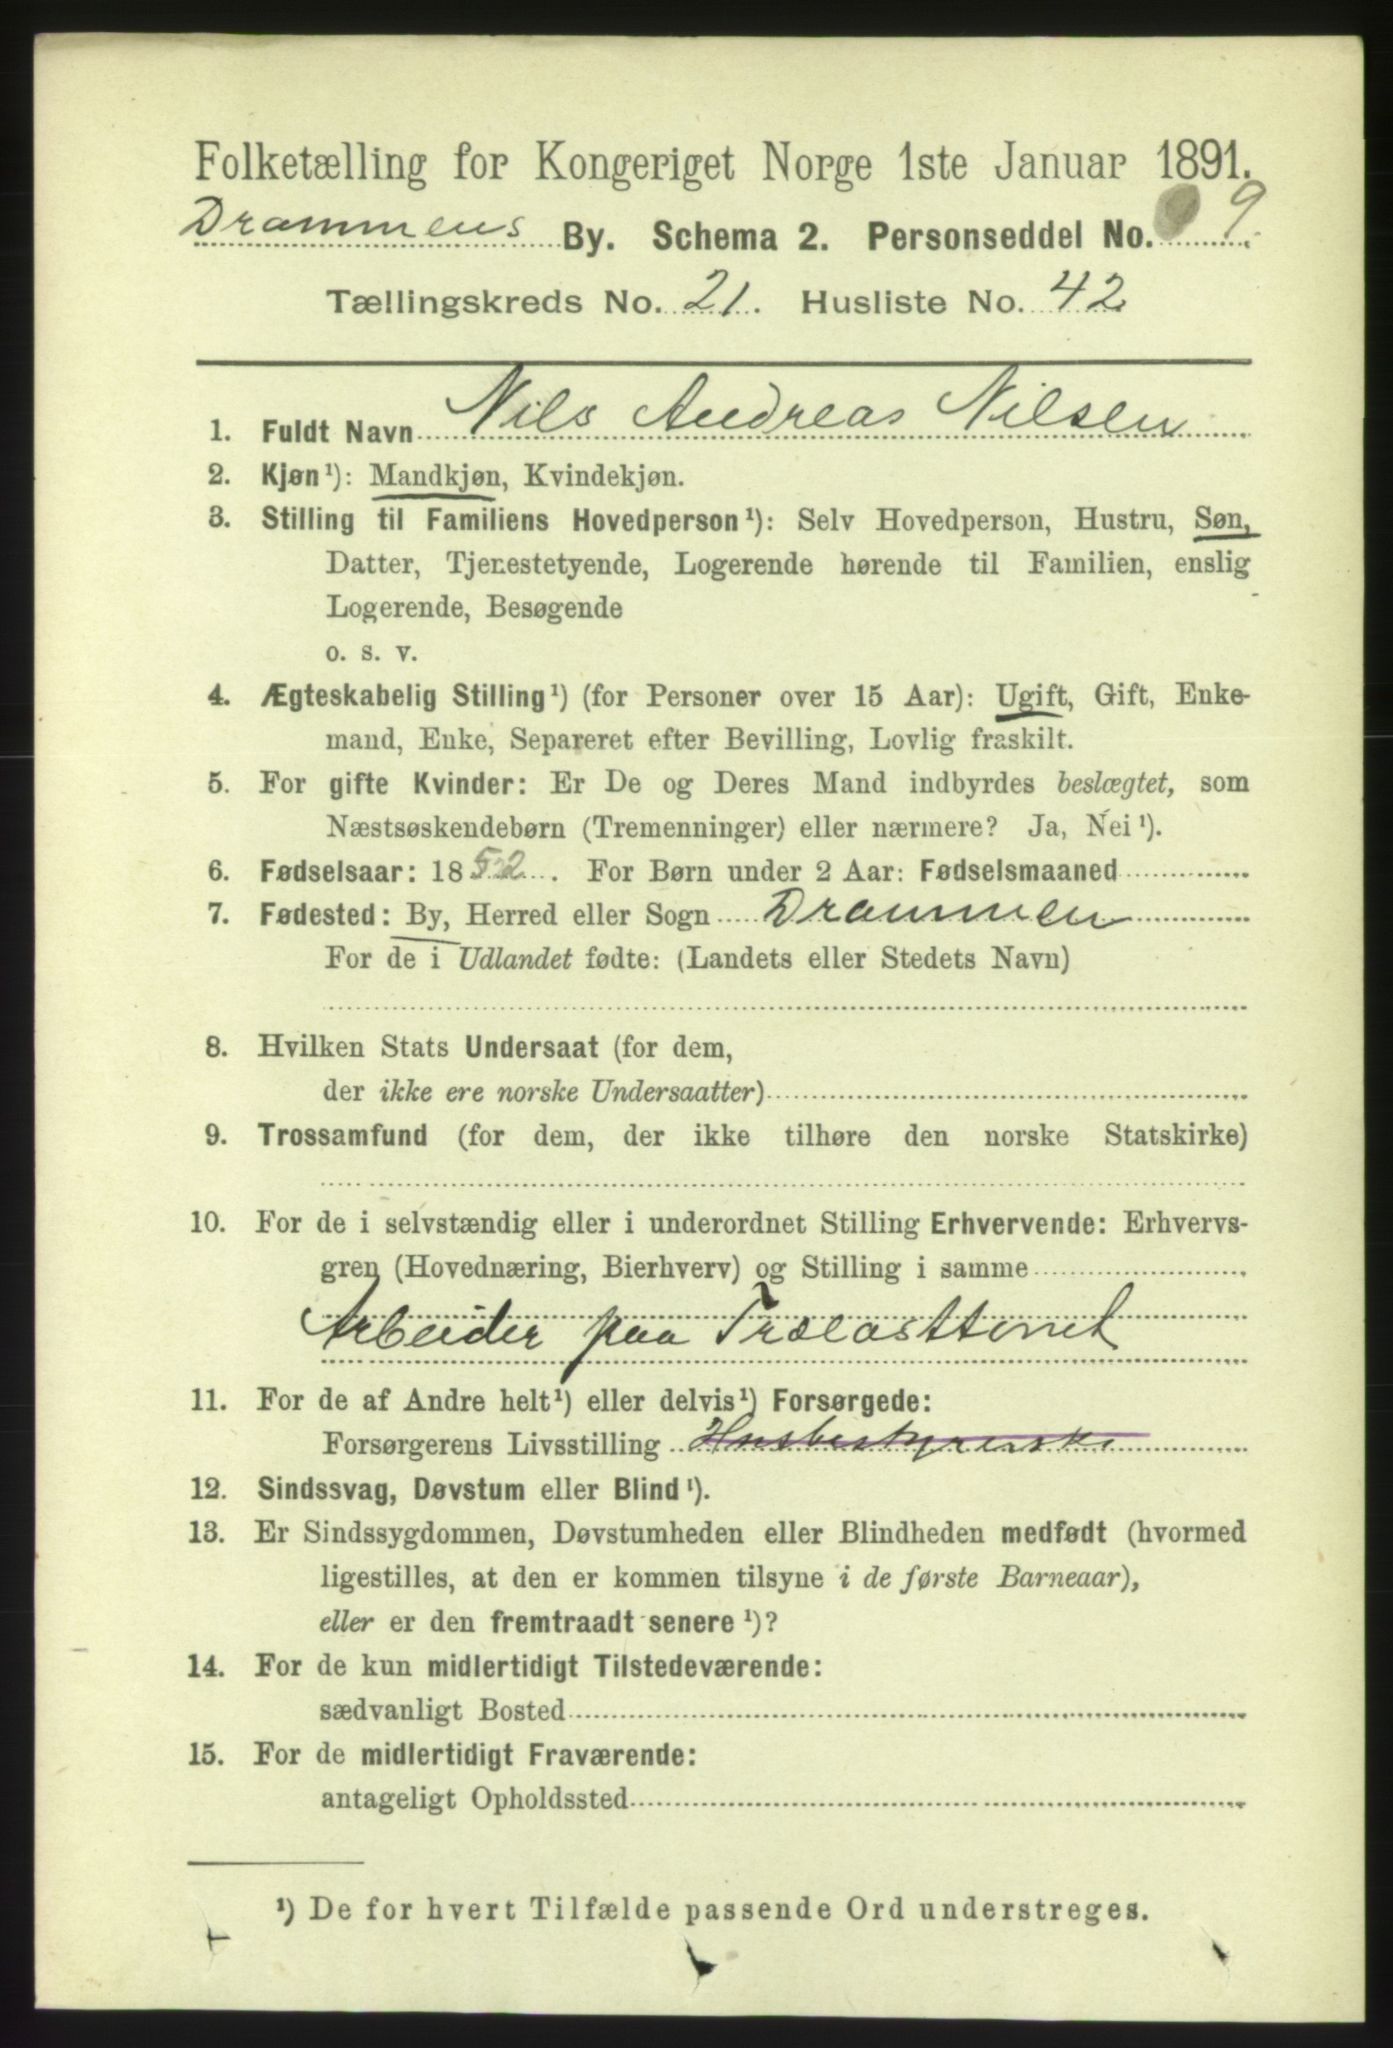 Folketælling for Kongeriget Norge 1ste Januar 1891.
Drammens By. Schema 2. Personseddel No. 9
Tællingskreds No. 21. Husliste No. 42
1. Fuldt Navn Nils Andreas Nilsen
2. Kjøn¹): Mandkjøn, Kvindekjøn.
3. Stilling til Familiens Hovedperson¹): Selv Hovedperson, Hustru, Søn,
Datter, Tjenestetyende, Logerende hørende til Familien, enslig
Logerende, Besøgende
o. s. v.
4. Ægteskabelig Stilling¹) (for Personer over 15 Aar): Ugift, Gift, Enke-
mand, Enke, Separeret efter Bevilling, Lovlig fraskilt.
5. For gifte Kvinder: Er De og Deres Mand indbyrdes beslægtet, som
Næstsøskendebørn (Tremenninger) eller nærmere? Ja, Nei¹).
6. Fødselsaar: 1852. For Børn under 2 Aar: Fødselsmaaned
7. Fødested: By, Herred eller Sogn Drammen
For de i Udlandet fødte: (Landets eller Stedets Navn)
8. Hvilken Stats Undersaat (for dem,
der ikke ere norske Undersaatter)
9. Trossamfund (for dem, der ikke tilhøre den norske Statskirke)
10. For de i selvstændig eller i underordnet Stilling Erhvervende: Erhvervs-
gren (Hovednæring, Bierhverv) og Stilling i samme
Arbeider paa Trælasttomt
11. For de af Andre helt¹) eller delvis¹) Forsørgede:
Forsørgerens Livsstilling Husbestyrerske
12. Sindssvag, Døvstum eller Blind¹).
13. Er Sindssygdommen, Døvstumheden eller Blindheden medfødt (hvormed
ligestilles, at den er kommen tilsyne i de første Barneaar),
eller er den fremtraadt senere¹)?
14. For de kun midlertidigt Tilstedeværende:
sædvanligt Bosted
15. For de midlertidigt Fraværende:
antageligt Opholdssted
¹) De for hvert Tilfælde passende Ord understreges.